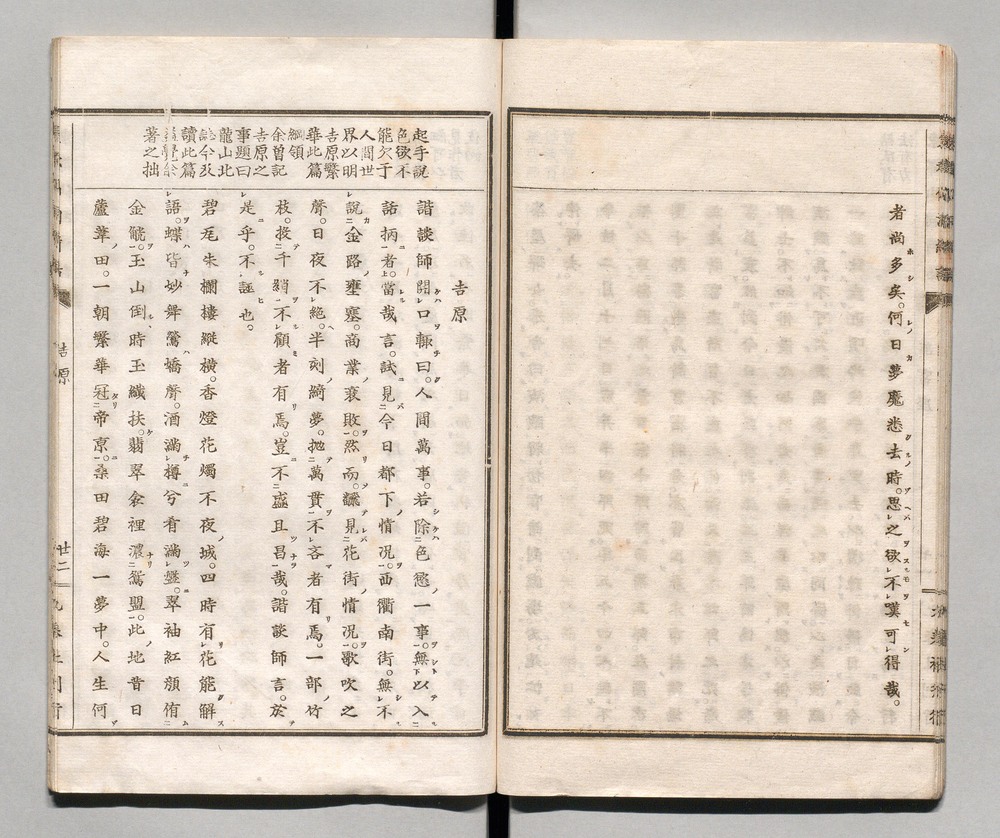 者尚多矣。何日夢魔悉去時。思之欲不嘆可得哉。
吉原
諧談師開口輙曰。人間萬事。若除色慾一事。無以入
話柄者。當哉言。試見今日都下情况。西衢南街。無不
說金路壅塞。商業衰敗。然而纔見花街情况。歌吹之
聲。日夜不絕。半刻綺夢。抛萬貫不吝者有焉。一部竹
枝。投千緡不顧者有焉。豈不盛且昌哉。諧談師言。於
是乎。不誣也。
碧瓦朱欄樓縱橫。香燈花燭不夜城。四時有花能解
語。蝶皆妙舞鶯嬌聲。酒滿樽兮肴滿盤。翠袖紅顏侑
金觥。玉山倒時玉纖扶。翡翠衾裡濃鴛盟。此地昔日
蘆葦田。一朝繁華冠帝京。桑田碧海一夢中。人生何
起手說
色欲不
能欠于
人間世
界以明
吉原繁
華此篇
綱領
余曾記
吉原之
事題曰
龍山北
誌今及
讀此篇
覺余
著之拙
吉原
廿二